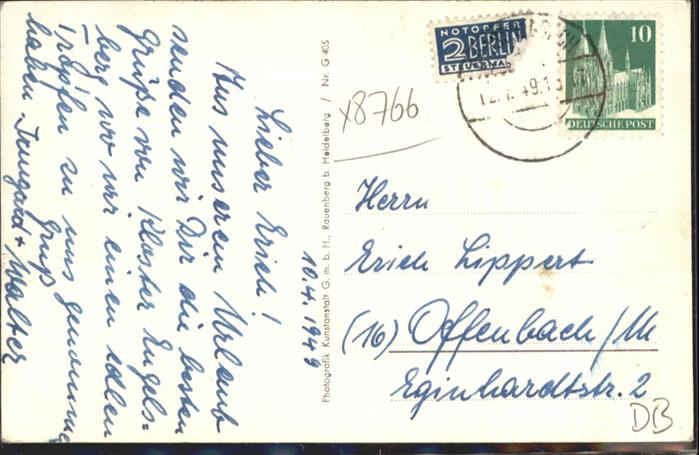 10.4.1949
Lieber Erich!
Aus unserem Urlaub
senden wir Dir die besten
Grüße von Kloster Engels=
berg wo wir einen edlen
Tropfen zu uns genommen
haben Gruß
Irmgard + Walter
Photografik Kunstanstalt G. m. b. H., Rauenberg b. Heidelberg / Nr. G 405
x8766
NOTOPFER
2 BERLIN
STEUERMARKE
10
DEUTSCHE POST
49.1
Herrn
Erich Lippert
(16) Offenbach/M
Eginhardtstr. 2
DB